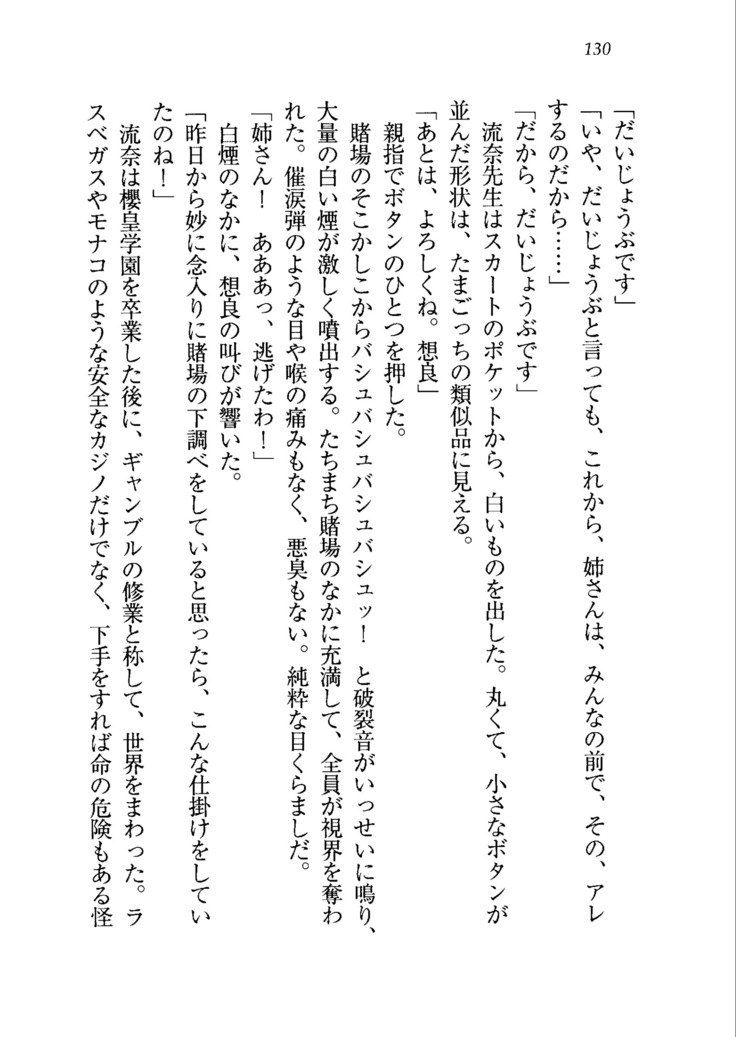 130
「だいじょうぶです」
「いや、だいじょうぶと言っても、これから、姉さんは、みんなの前で、その、アレ
するのだから……」
「だから、だいじょうぶです」
　流奈先生はスカートのポケットから、白いものを出した。丸くて、小さなボタンが
並んだ形状は、たまごっちの類似品に見える。
「あとは、よろしくね。想良」
　親指でボタンのひとつを押した。
　賭場のそこかしこからバシュバシュバシュバシュッ！　と破裂音がいっせいに鳴り、
大量の白い煙が激しく噴出する。たちまち賭場のなかに充満して、全員が視界を奪わ
れた。催涙弾のような目や喉の痛みもなく、悪臭もない。純粋な目くらましだ。
「姉さん！　あああっ、逃げたわ！」
　白煙のなかに、想良の叫びが響いた。
「昨日から妙に念入りに賭場の下調べをしていると思ったら、こんな仕掛けをしてい
たのね！」
　流奈は櫻皇学園を卒業した後に、ギャンブルの修業と称して、世界をまわった。ラ
スベガスやモナコのような安全なカジノだけでなく、下手をすれば命の危険もある怪